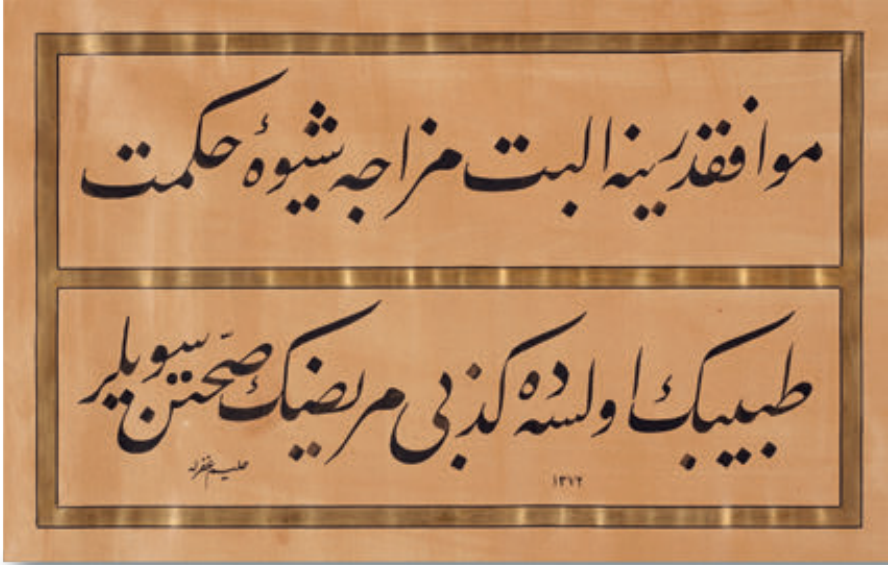 موافقدر ینه البت مزاجه شیوۀ حکمت
طبیبك اولسه ده کذبی مریضك صحّتن سویلر
١٣٧٢
حلیم غفرله